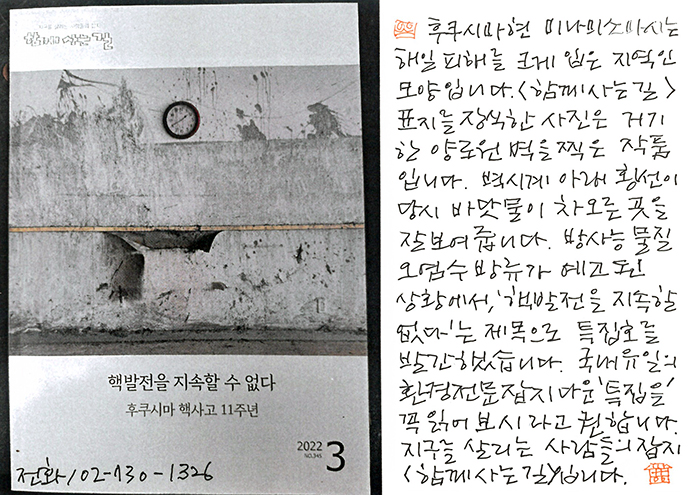 함께사는길
핵발전을 지속할 수 없다
후쿠시마 핵사고 11주년
2022
NO.345
3
전화/02-730-1326
후쿠시마현 미나미소마시는
해일피해를 크게 입은 지역인
모양입니다.〈함께사는길〉
표지를 장식한 사진은 거기
한 양로원 벽을 찍은 작품
입니다. 벽시계 아래 황선이
당시 바닷물이 차오른 곳을
잘보여줍니다. 방사능 물질
오염수 방류가 예고된
상황에서, '핵발전을 지속할 수
없다'는 제목으로 특집호를
발간했습니다. 국내유일의
환경전문잡지다운 '특집을'
꼭 읽어 보시라고 권합니다.
지구를 살리는 사람들의 잡지
〈함께사는길〉입니다.